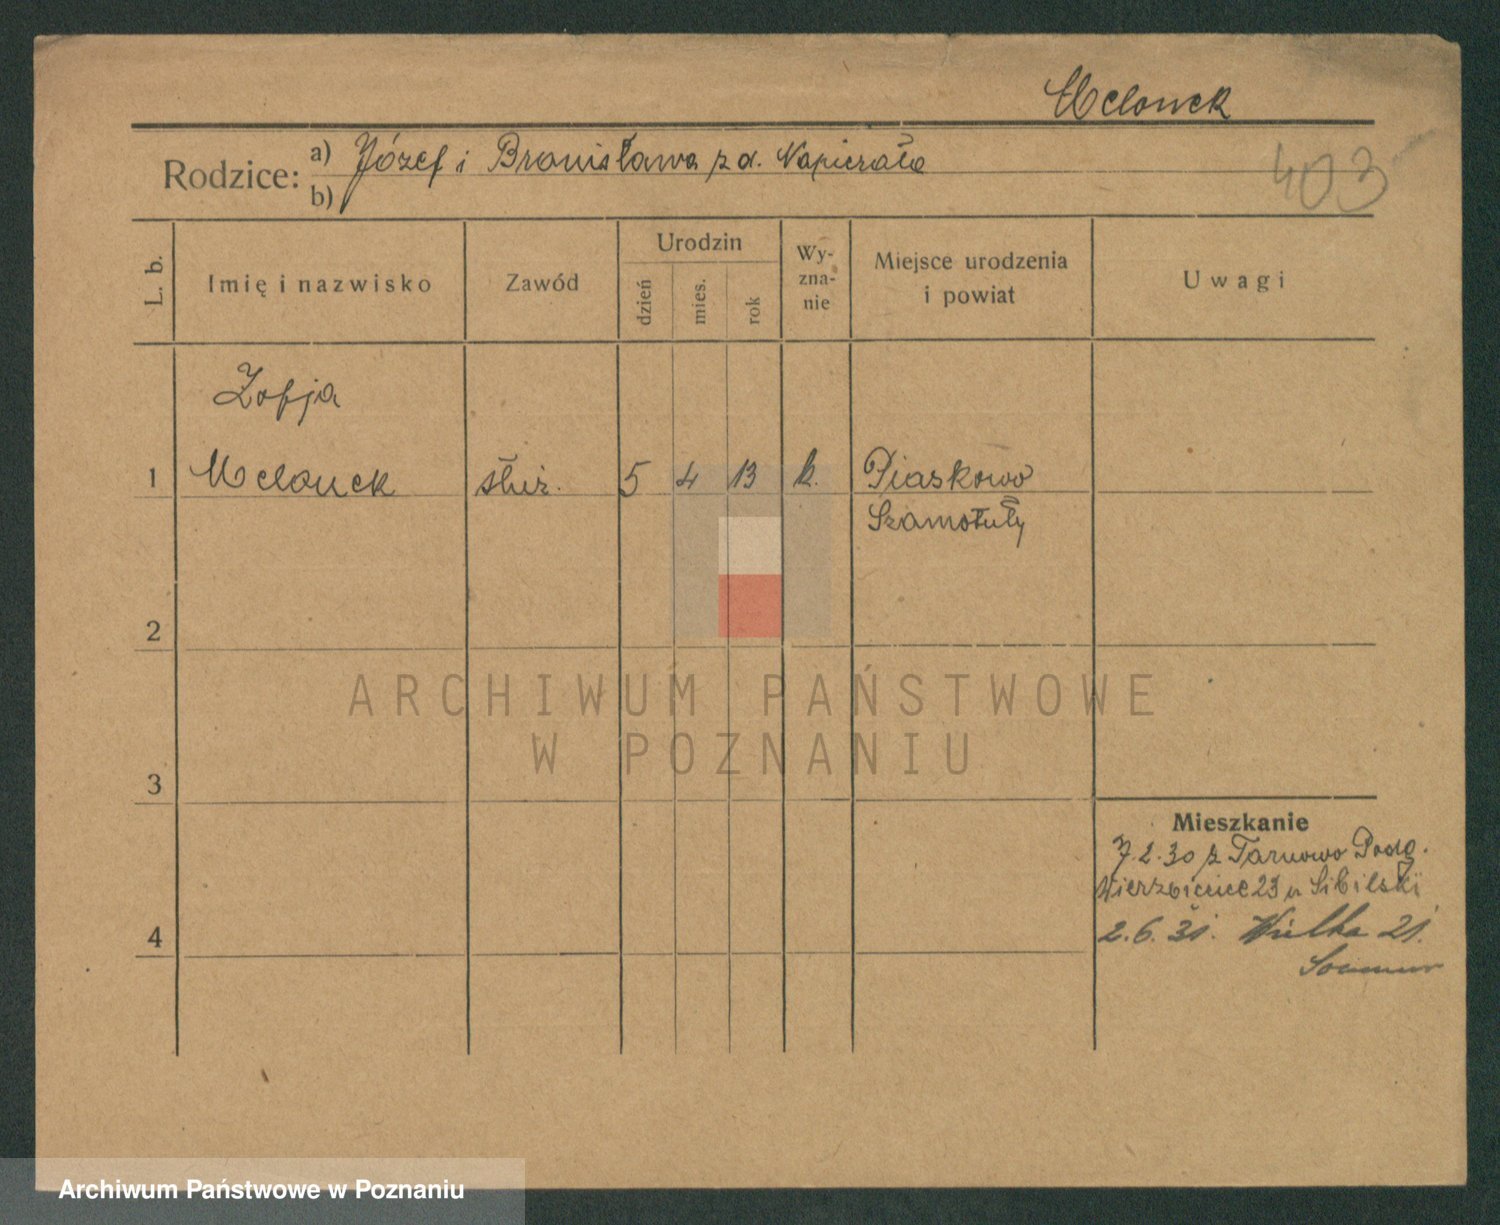 Melonek
Rodzice: a) Józef i Bronisława z d. Napierała
b)
403
L. b.
Imię i nazwisko
Zawód
Urodzin
dzień
mies.
rok
Wy-
zna-
nie
Miejsce urodzenia
i powiat
Uwagi
Zofja
1 Melonek służ. 5 4 13 k. Piaskowo
Szamotuły
2
ARCHIWUM PAŃSTWOWE
W POZNANIU
3
Mieszkanie
7.2.30 z Tarnowo Podg.
Wierzbięcice 23 u Sibilski
4
2.6.31. Wielka 21.
Archiwum Państwowe w Poznaniu